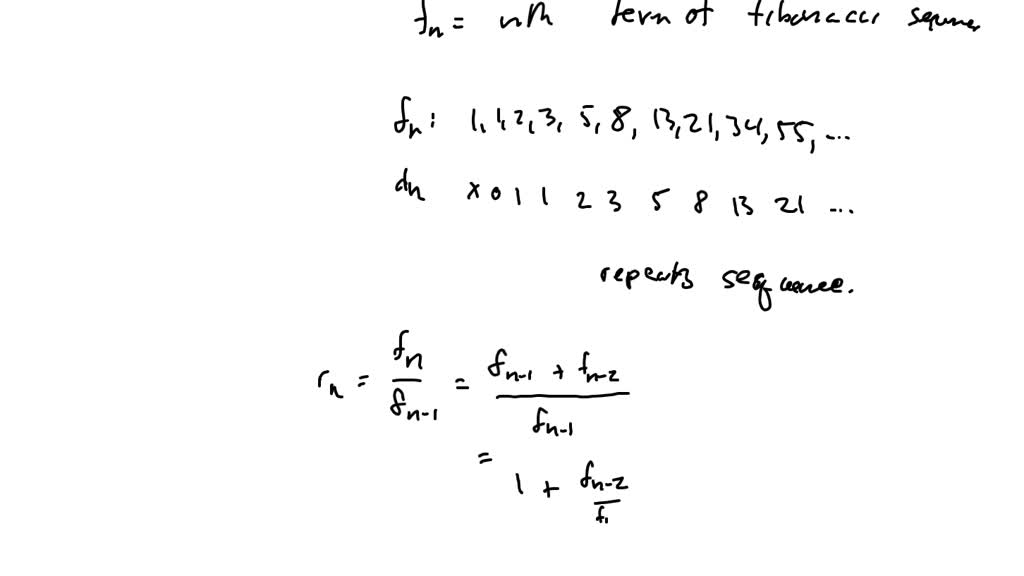 fn = nth term of fibonacci sequence
fn: 1, 1, 2, 3, 5, 8, 13, 21, 34, 55, ...
dn x 0 1 1 2 3 5 8 13 21 ...
repeats sequence.
rn = fn / fn-1 = fn-1 + fn-2 / fn-1
= 1 + fn-2 / f